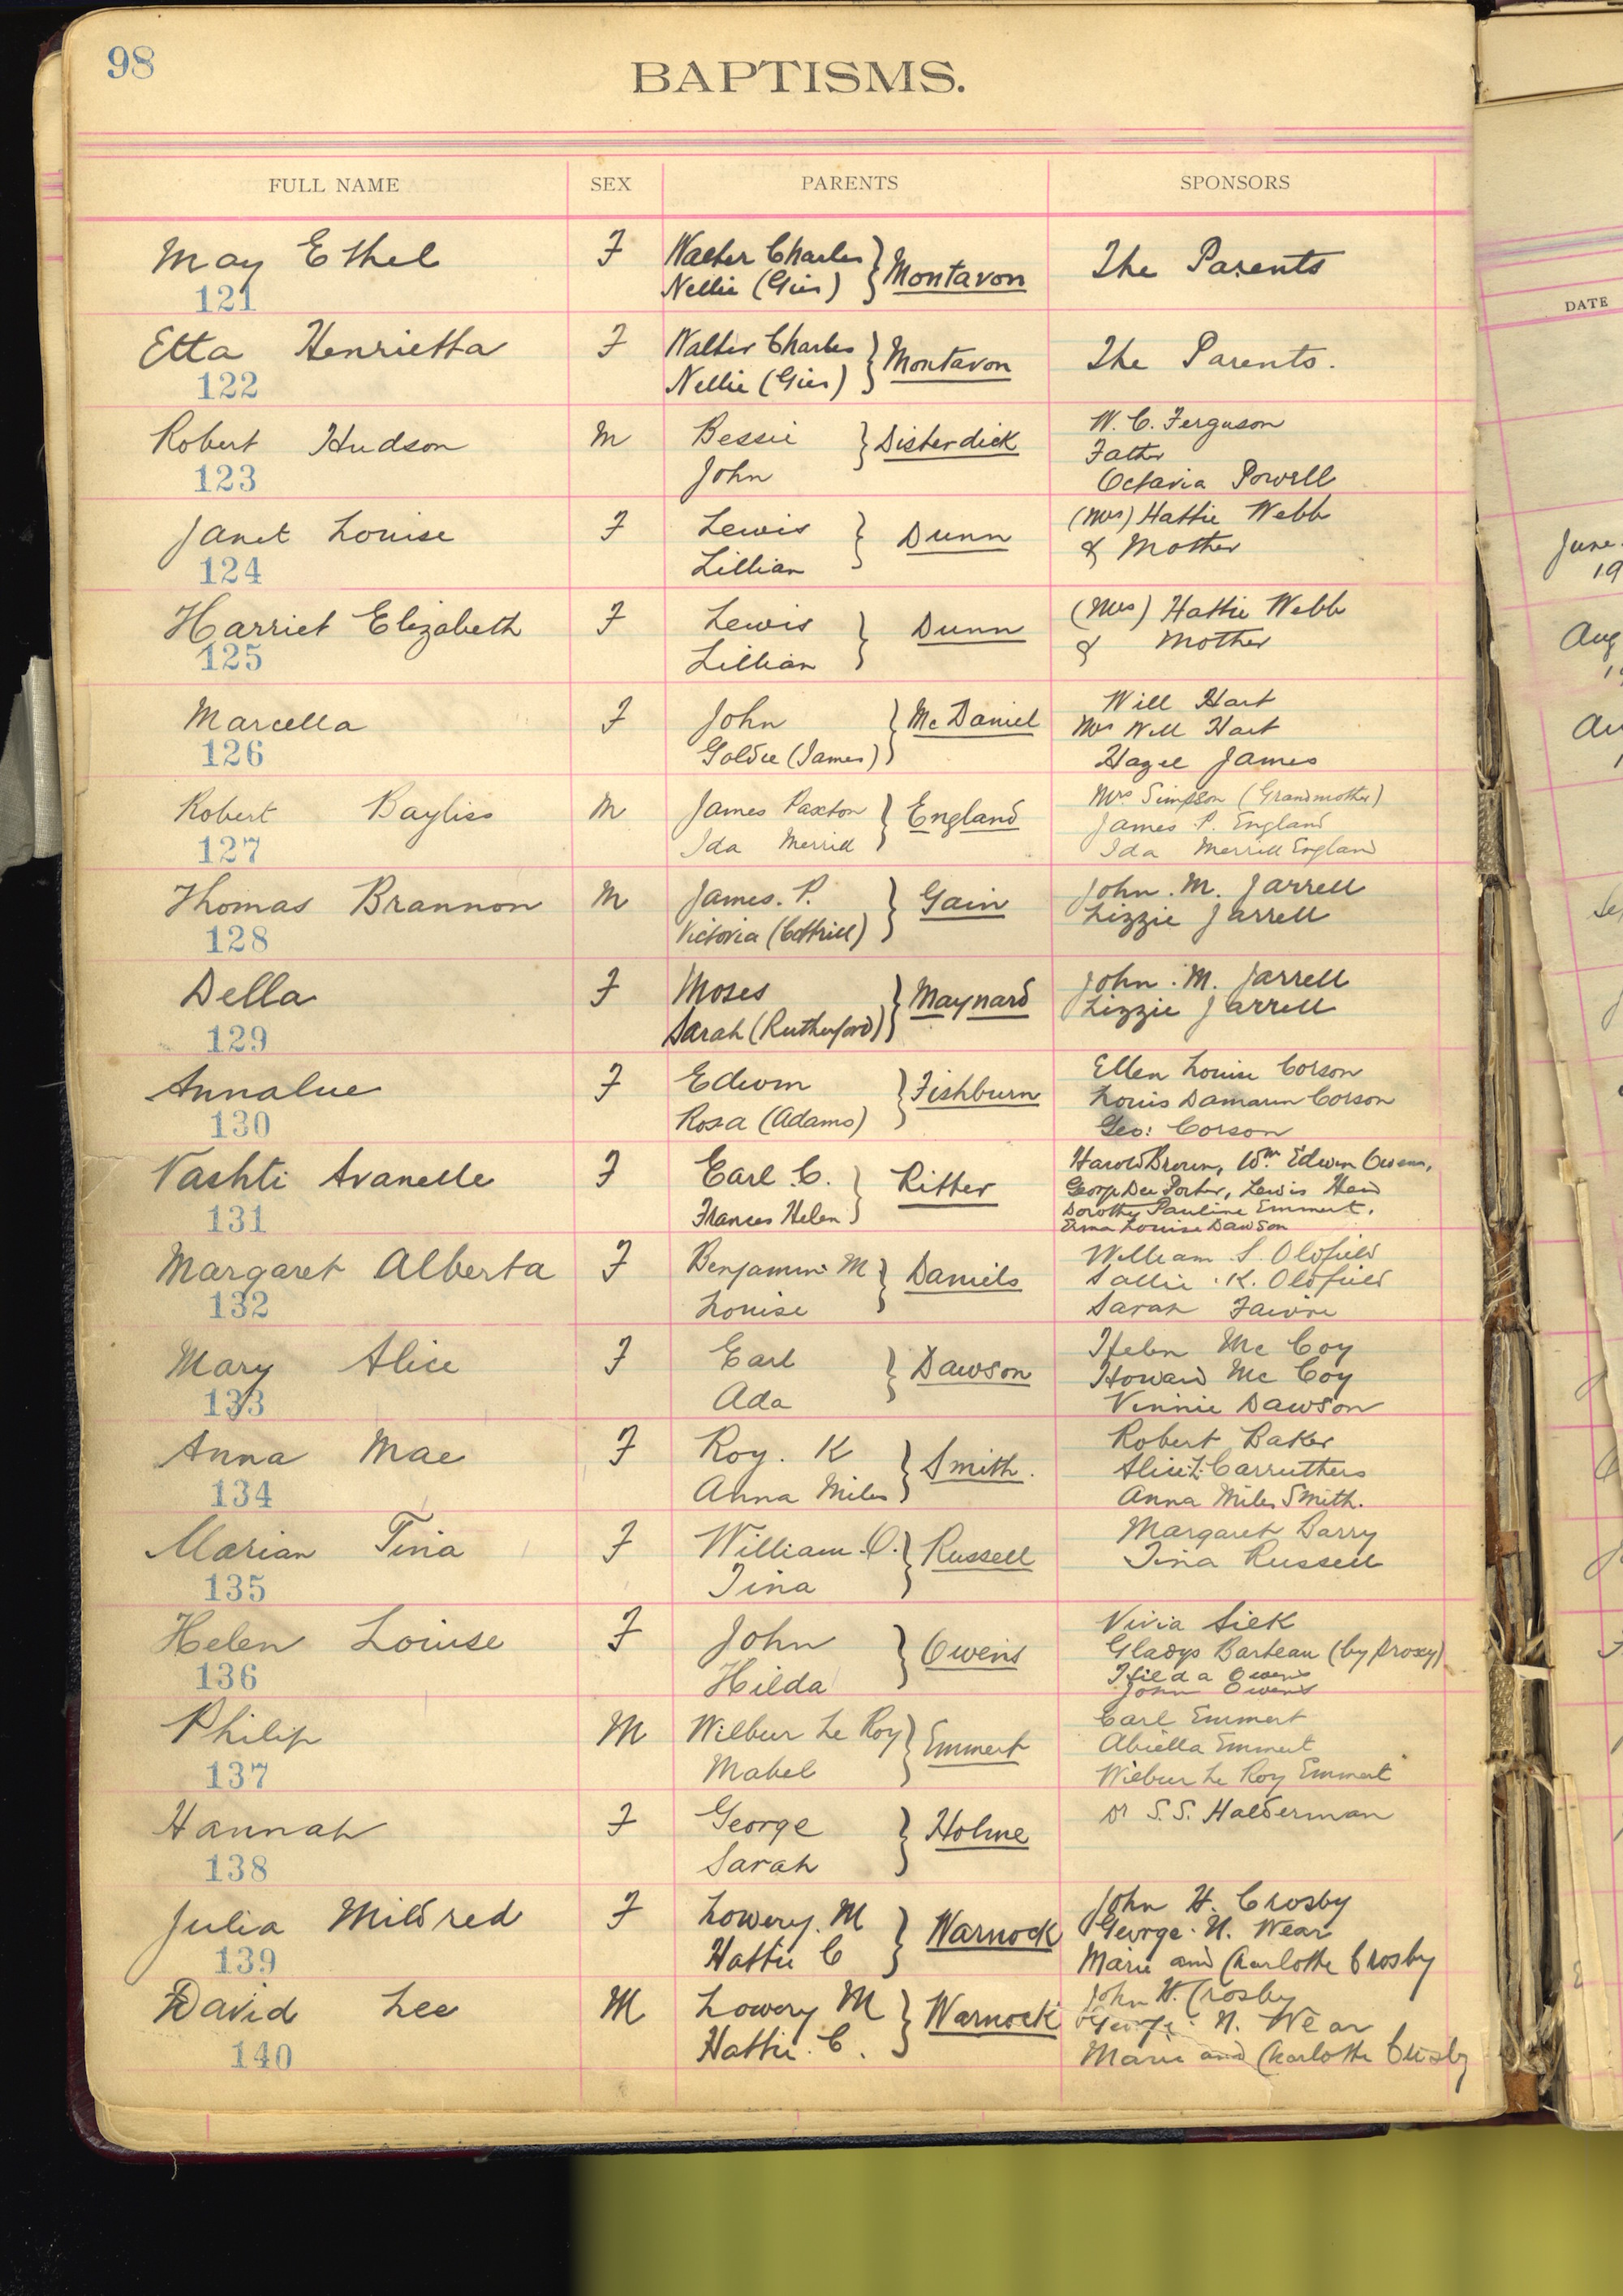 98
BAPTISMS.
FULL NAME SEX PARENTS SPONSORS
May Ethel F Walter Charles } Montavon The Parents
121 Nellie (Gies)
Etta Henrietta F Walter Charles } Montavon The Parents.
122 Nellie (Gies)
Robert Hudson M Bessie } Disterdick W. C. Ferguson
Father
123 John Octavia Powell
Janet Louise F Lewis } Dunn (Mrs) Hattie Webb
124 Lillian & Mother
Harriet Elizabeth F Lewis } Dunn (Mrs) Hattie Webb
125 Lillian & Mother
Marcella F John } McDaniel Will Hart
Mrs Will Hart
126 Goldie (James) Hazel James
Robert Bayliss M James Paxton } England Mrs Simpson (Grandmother)
James P. England
127 Ida Merrill Ida Merrill England
Thomas Brannon M James. P. } Gain John. M. Jarrell
128 Victoria (Cottrill) Lizzie Jarrell
Della F Moses } Maynard John. M. Jarrell
129 Sarah (Rutherford) Lizzie Jarrell
Annalue F Edwin } Fishburn Ellen Louise Corson
Louis Corson
130 Rosa (Adams) Geo: Corson
Vashti Avanelle F Earl C. } Ritter Harold Brown, Wm. Edwin Owens,
George Dee Porter, Lewis
131 Frances Helen Dorothy Pauline Emmert,
Erma Louise Dawson
Margaret Alberta F Benjamin M } Daniels William S. Oldfield
Sallie. K. Oldfield
132 Louise Sarah
Mary Alice F Earl } Dawson Helen McCoy
Howard McCoy
133 Ada Vinnie Dawson
Anna Mae F Roy. K } Smith. Robert Baker
Alice L. Carruthers
134 Anna Miles Anna Miles Smith.
Marian Tina F William. O. } Russell Margaret Barry
135 Tina Tina Russell
Helen Louise F John } Owens Vivia Siek
Gladys Barbeau (by proxy)
136 Hilda Hilda Owens
John Owens
Philip M Wilbur Le Roy } Emmert Carl Emmert
Abiella Emmert
137 Mabel Wilbur Le Roy Emmert
Hannah F George } Holme Dr S. S. Halderman
138 Sarah
Julia Mildred F Lowery. M } Warnock John H. Crosby
George. N. Wear
139 Hattie C Marie and Charlotte Crosby
David Lee M Lowery M } Warnock John H. Crosby
George. N. Wear
140 Hattie. C. Marie and Charlotte Crosby
DATE
June
19
Aug